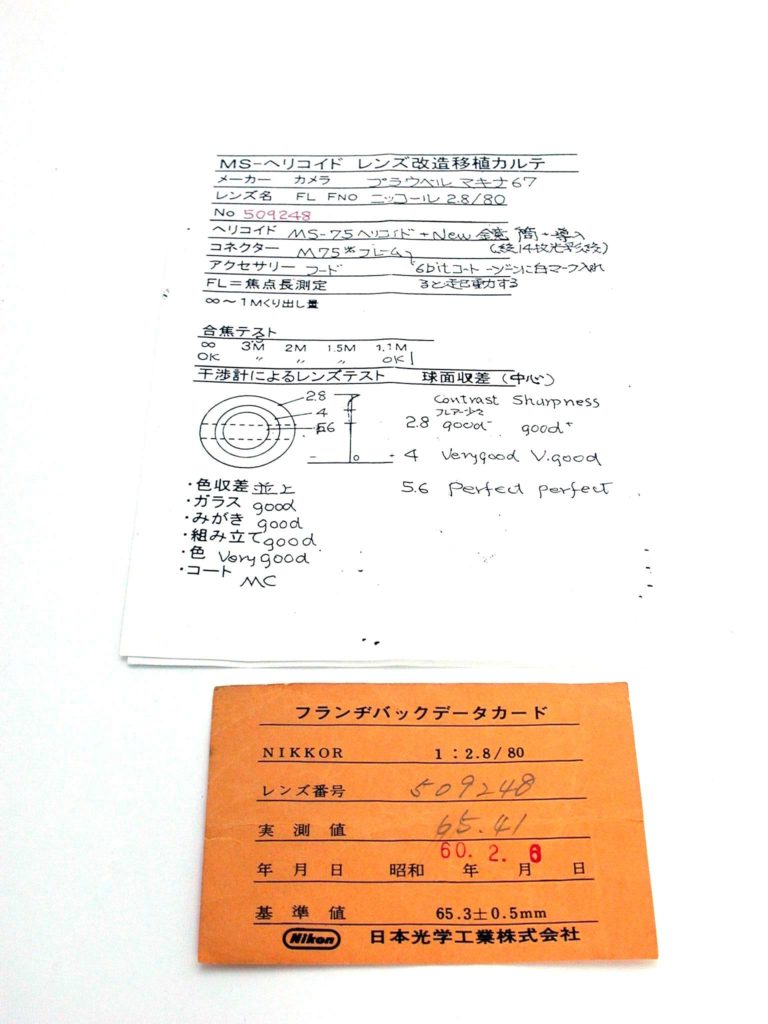 MS-ヘリコイド レンズ改造移植カルテ
メーカー カメラ プラウベル マキナ67
レンズ名 FL FNO ニッコール 2.8/80
No 509248
ヘリコイド MS-75ヘリコイド+New鏡筒+導入
コネクター M75
アクセサリー フード 6bitコート
FL=焦点長測定 ると起動する
∞~1Mくり出し量
合焦テスト
∞ 3M 2M 1.5M 1.1M
OK 〃 〃 〃 OK
干渉計によるレンズテスト 球面収差(中心)
Contrast Sharpness
2.8 4 5.6
フレアー少々
2.8 good- good+
4 Verygood V.good
5.6 Perfect perfect
・色収差 並上
・ガラス good
・みがき good
・組み立て good
・色 Very good
・コート MC
フランヂバックデータカード
NIKKOR 1:2.8/80
レンズ番号 509248
実測値 65.41
60. 2. 6
年月日 昭和 年 月 日
基準値 65.3±0.5mm
Nikon 日本光学工業株式会社